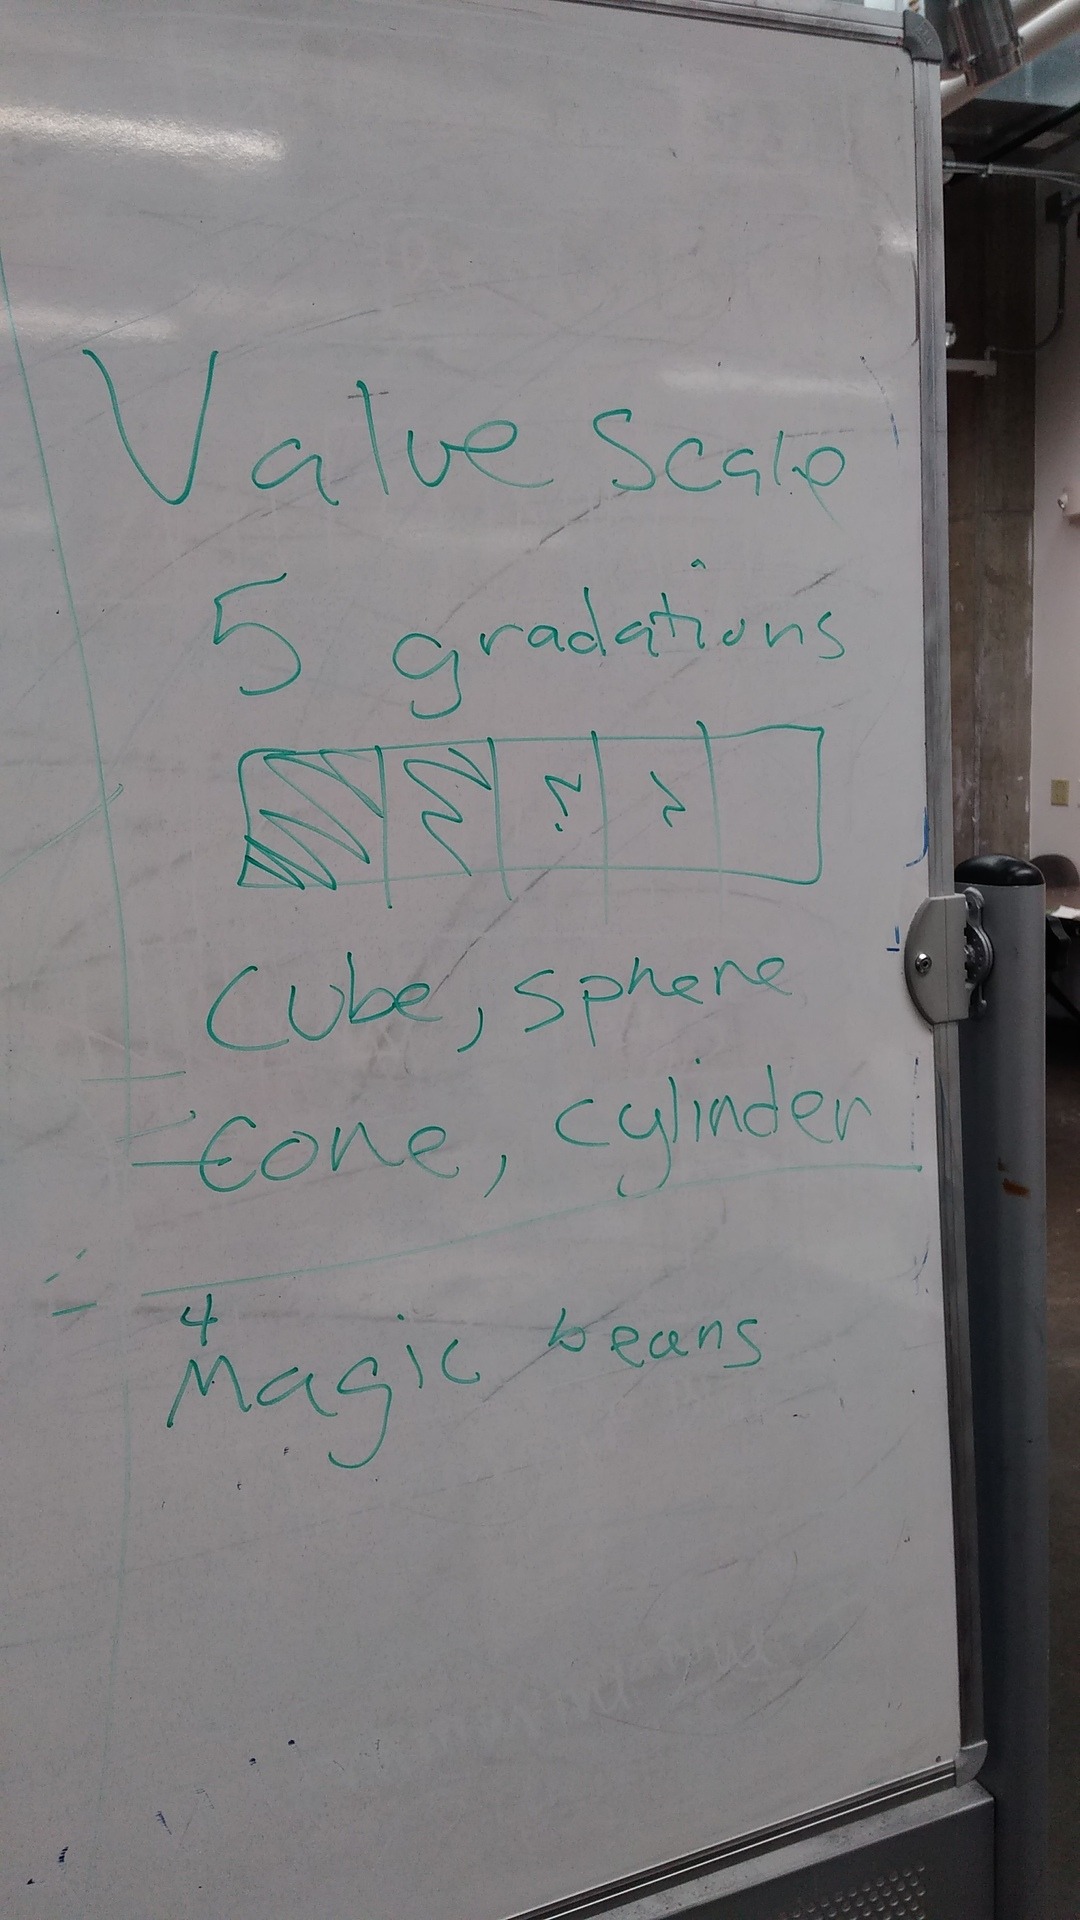 Value Scale
5 gradations
Cube, sphere
cone, cylinder
4
Magic beans